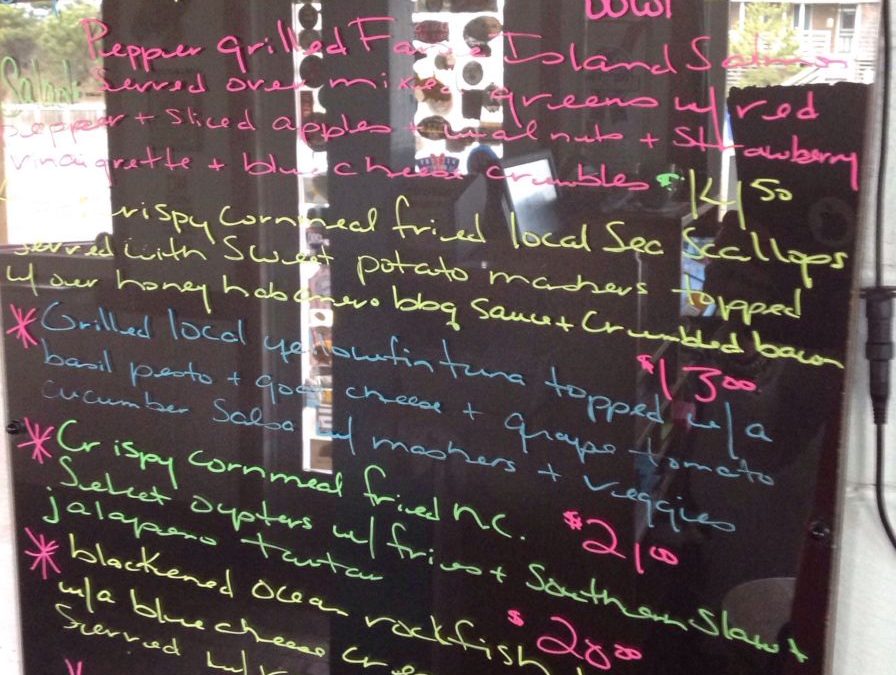 bowl
Pepper grilled Faroe Island Salmon
Salad: Served over mixed greens w/ red
pepper + sliced apples + walnuts + Strawberry
vinaigrette + blue cheese crumbles $14.50
crispy cornmeal fried local Sea Scallops
served with Sweet potato mashers topped
w/ our honey habanero bbq sauce + crumbled bacon
$13.00
* Grilled local yellowfin tuna topped w/ a
basil pesto + goat cheese + grape tomato
cucumber Salsa w/ mashers + veggies
$21.00
* Crispy cornmeal fried n.c.
Select oysters w/ fries + Southern Slaw +
jalapeno tartar
$20.00
* blackened ocean rockfish
w/a blue cheese
Served w/